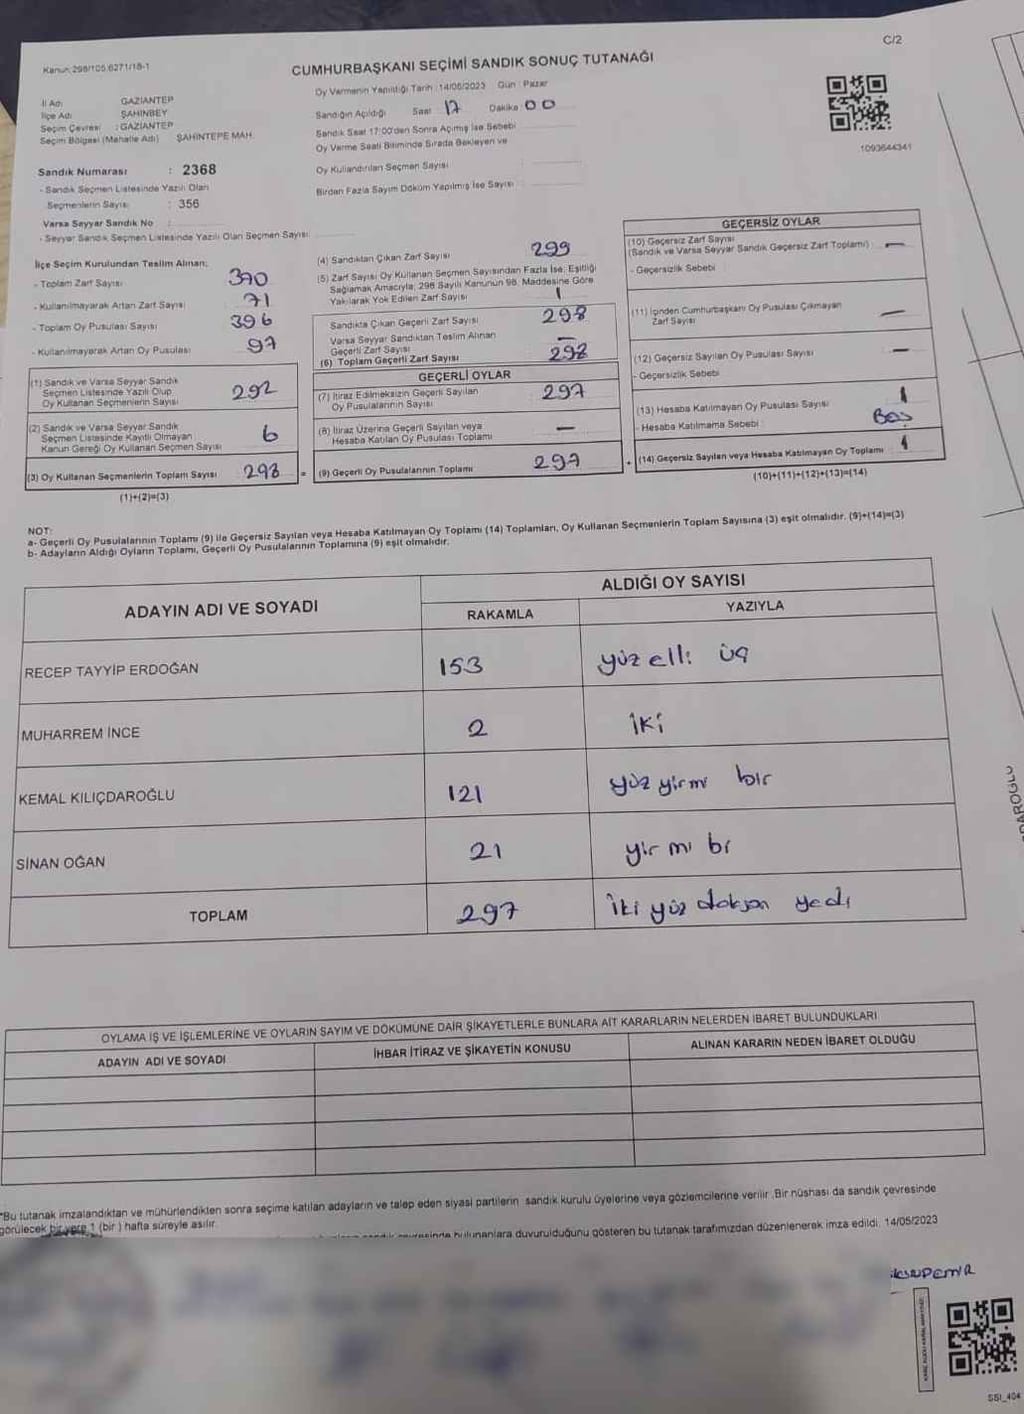 C/2
Kanun:298/105,6271/18-1
CUMHURBAŞKANI SEÇİMİ SANDIK SONUÇ TUTANAĞI
Oy Vermenin Yapıldığı Tarih :14/05/2023 Gün : Pazar
İl Adı GAZİANTEP
İlçe Adı ŞAHİNBEY
Seçim Çevresi : GAZİANTEP
Seçim Bölgesi (Mahalle Adı) ŞAHİNTEPE MAH.
Sandığın Açıldığı Saat 17 Dakika 00
Sandık Saat 17:00'den Sonra Açımış İse Sebebi
Oy Verme Saati Bitiminde Sırada Bekleyen ve
Oy Kullandırılan Seçmen Sayısı :
Birden Fazla Sayım Döküm Yapılmış İse Sayısı :
1093644341
Sandık Numarası : 2368
- Sandık Seçmen Listesinde Yazılı Olan
Seçmenlerin Sayısı : 356
Varsa Seyyar Sandık No :
- Seyyar Sandık Seçmen Listesinde Yazılı Olan Seçmen Sayısı
İlçe Seçim Kurulundan Teslim Alınan;
- Toplam Zarf Sayısı 370
- Kullanılmayarak Artan Zarf Sayısı 71
- Toplam Oy Pusulası Sayısı 396
- Kullanılmayarak Artan Oy Pusulası 97
(1) Sandık ve Varsa Seyyar Sandık
Seçmen Listesinde Yazılı Olup
Oy Kullanan Seçmenlerin Sayısı 292
(2) Sandık ve Varsa Seyyar Sandık
Seçmen Listesinde Kayıtlı Olmayan
Kanun Gereği Oy Kullanan Seçmen Sayısı 6
(3) Oy Kullanan Seçmenlerin Toplam Sayısı 298 =
(1)+(2)=(3)
(4) Sandıktan Çıkan Zarf Sayısı 299
(5) Zarf Sayısı Oy Kullanan Seçmen Sayısından Fazla İse; Eşitliği
Sağlamak Amacıyla, 298 Sayılı Kanunun 98. Maddesine Göre
Yakılarak Yok Edilen Zarf Sayısı 1
Sandıkta Çıkan Geçerli Zarf Sayısı 298
Varsa Seyyar Sandıktan Teslim Alınan
Geçerli Zarf Sayısı —
(6) Toplam Geçerli Zarf Sayısı 298
GEÇERLİ OYLAR
(7) İtiraz Edilmeksizin Geçerli Sayılan
Oy Pusulalarının Sayısı 297
(8) İtiraz Üzerine Geçerli Sayılan veya
Hesaba Katılan Oy Pusulası Toplamı —
(9) Geçerli Oy Pusulalarının Toplamı 297 +
GEÇERSİZ OYLAR
(10) Geçersiz Zarf Sayısı
(Sandık ve Varsa Seyyar Sandık Geçersiz Zarf Toplamı) —
- Geçersizlik Sebebi :
(11) İçinden Cumhurbaşkanı Oy Pusulası Çıkmayan
Zarf Sayısı —
(12) Geçersiz Sayılan Oy Pusulası Sayısı —
- Geçersizlik Sebebi
(13) Hesaba Katılmayan Oy Pusulası Sayısı 1
- Hesaba Katılmama Sebebi : Boş
(14) Geçersiz Sayılan veya Hesaba Katılmayan Oy Toplamı 1
(10)+(11)+(12)+(13)=(14)
NOT:
a- Geçerli Oy Pusulalarının Toplamı (9) ile Geçersiz Sayılan veya Hesaba Katılmayan Oy Toplamı (14) Toplamları, Oy Kullanan Seçmenlerin Toplam Sayısına (3) eşit olmalıdır. (9)+(14)=(3)
b- Adayların Aldığı Oyların Toplamı, Geçerli Oy Pusulalarının Toplamına (9) eşit olmalıdır.
ADAYIN ADI VE SOYADI ALDIĞI OY SAYISI
RAKAMLA YAZIYLA
RECEP TAYYİP ERDOĞAN 153 yüz elli üç
MUHARREM İNCE 2 iki
KEMAL KILIÇDAROĞLU 121 yüz yirmi bir
SİNAN OĞAN 21 yirmi bi
TOPLAM 297 iki yüz doksan yedi
OYLAMA İŞ VE İŞLEMLERİNE VE OYLARIN SAYIM VE DÖKÜMÜNE DAİR ŞİKAYETLERLE BUNLARA AİT KARARLARIN NELERDEN İBARET BULUNDUKLARI
ADAYIN ADI VE SOYADI İHBAR İTİRAZ VE ŞİKAYETİN KONUSU ALINAN KARARIN NEDEN İBARET OLDUĞU
*Bu tutanak imzalandıktan ve mühürlendikten sonra seçime katılan adayların ve talep eden siyasi partilerin sandık kurulu üyelerine veya gözlemcilerine verilir .Bir nüshası da sandık çevresinde
görülecek bir yere 1 (bir ) hafta süreyle asılır.
bulunanlara duyurulduğunu gösteren bu tutanak tarafımızdan düzenlenerek imza edildi. 14/05/2023
SSI_404